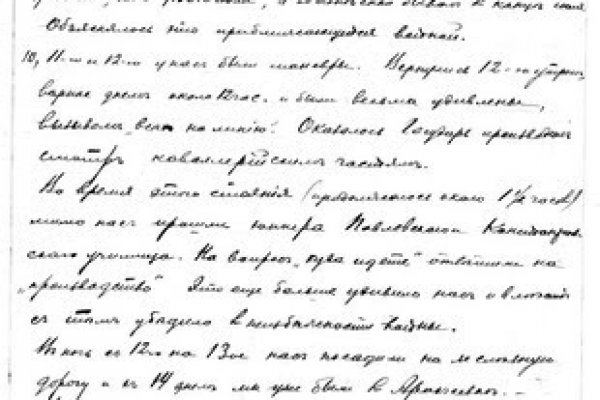 Объяснялось это приближающейся войной.
10, 11-го и 12-го у нас были маневры. Вернулись 12-го утром,
вернее днем около 12 час. и были весьма удивлены,
вызовом „всех на линию". Оказалось Государь производит
смотр кавалерийским частям.
Во время этого стояния (продолжалось около 1½ часов)
мимо нас прошли юнкера Павловского Константинов-
ского училища. На вопрос „куда идете" ответили на
„производство" Это еще больше удивило нас и вместе
с тем убедило в неизбежности войны.
В ночь с 12го на 13ое нас посадили на железную
дорогу и с 14 днем мы уже были в